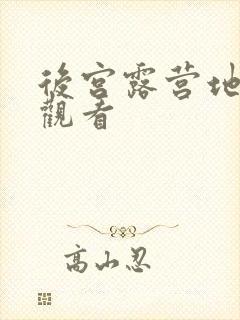 後宮露营地
觀看
高山忍